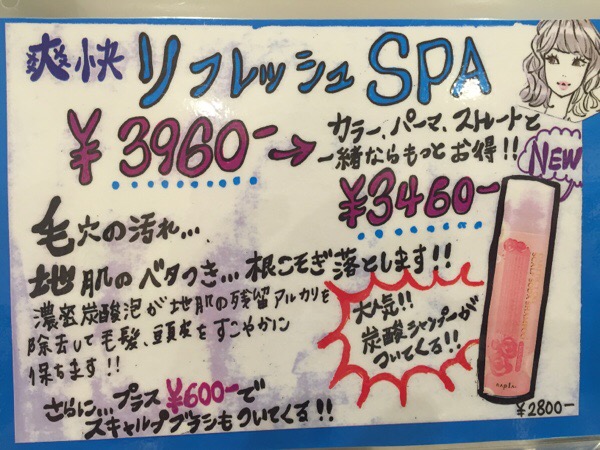 爽快リフレッシュSPA
¥3960-→
カラー、パーマ、ストレートと
一緒ならもっとお得!!
NEW
¥3460-
毛穴の汚れ...
地肌のベタつき...根こそぎ落とします!!
濃密炭酸泡が地肌の残留アルカリを
除去して毛髪、頭皮をすこやかに
保ちます!!
大人気!!
炭酸シャンプーが
ついてくる!!
さらに...プラス¥600-で
スキャルプブラシもついてくる!!
napla
¥2800-